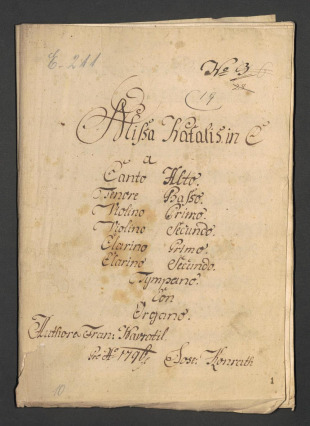 E-211
No 3
19
Missa Natalis in C
a
Canto Alto.
Tenore Basso.
Violino Primo.
Violino Secundo.
Clarino Primo.
Clarino Secundo.
Tympano.
Con
Organo.
Authore Fran: Navratil.
Jos: Konrath
10
1